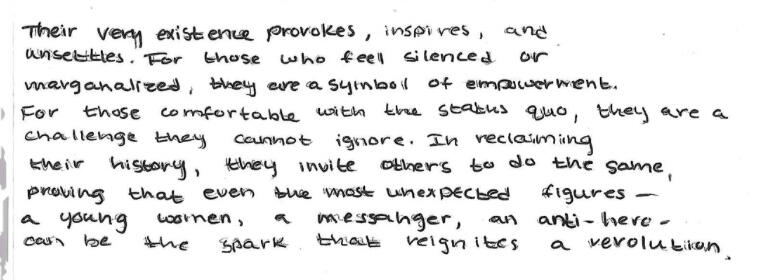 Their very existence provokes, inspires, and
unsettles. For those who feel silenced or
marganalized, they are a symbol of empowerment.
For those comfortable with the status quo, they are a
challenge they cannot ignore. In reclaiming
their history, they invite others to do the same,
proving that even the most unexpected figures —
a young women, a messanger, an anti-hero -
can be the spark that reignites a verolution.